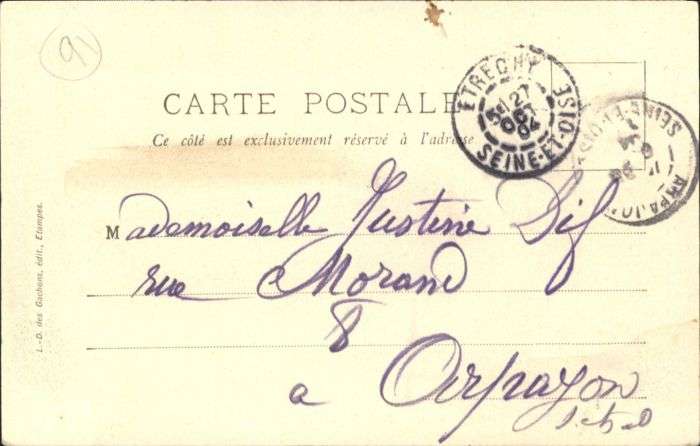 91
CARTE POSTALE
Ce côté est exclusivement réservé à l'adresse
ETRECHY
27
OCT
04
SEINE-ET-OISE
SEINE-ET-OISE
ARPAJON
Mademoiselle Justine Dif
rue Morand
8
a Arpajon
S et O
L.-D. des Gachons, édit., Etampes.